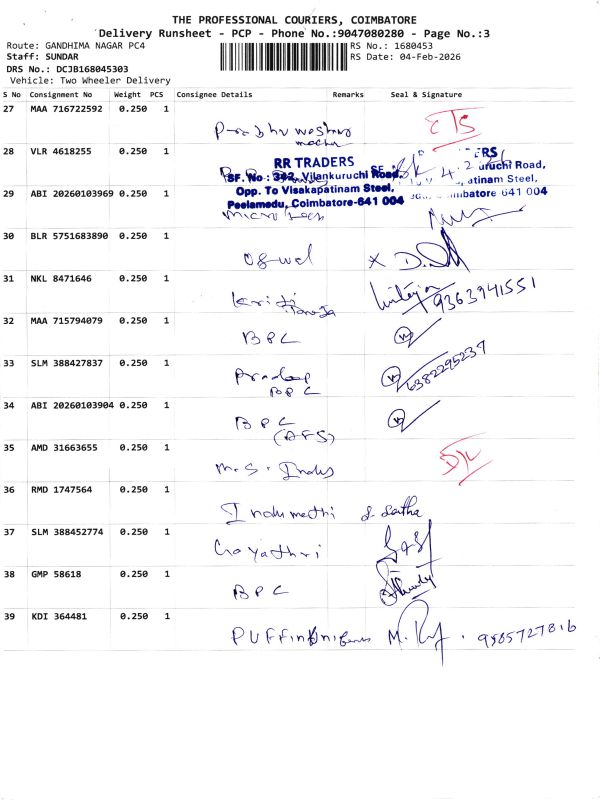 THE PROFESSIONAL COURIERS, COIMBATORE
Delivery Runsheet - PCP - Phone No.:9047080280 - Page No.:3
Route: GANDHIMA NAGAR PC4 RS No.: 1680453
Staff: SUNDAR RS Date: 04-Feb-2026
DRS No.: DCJB168045303
Vehicle: Two Wheeler Delivery
S No Consignment No Weight PCS Consignee Details Remarks Seal & Signature
27 MAA 716722592 0.250 1
Prabhu
28 VLR 4618255 0.250 1
RR TRADERS
SF. No : 342, Vilankuruchi Road,
Opp. To Visakapatinam Steel,
Peelamedu, Coimbatore-641 004
ERS
uruchi Road,
atinam Steel,
imbatore-641 004
29 ABI 20260103969 0.250 1
30 BLR 5751683890 0.250 1
31 NKL 8471646 0.250 1
9363941551
32 MAA 715794079 0.250 1
BPC
33 SLM 388427837 0.250 1
Pradeep
BPC
6382295237
34 ABI 20260103904 0.250 1
BPC
35 AMD 31663655 0.250 1
M.S. Indus
D/L
36 RMD 1747564 0.250 1
Indumathi
37 SLM 388452774 0.250 1
Gayathri
38 GMP 58618 0.250 1
BPC
39 KDI 364481 0.250 1
9585727816